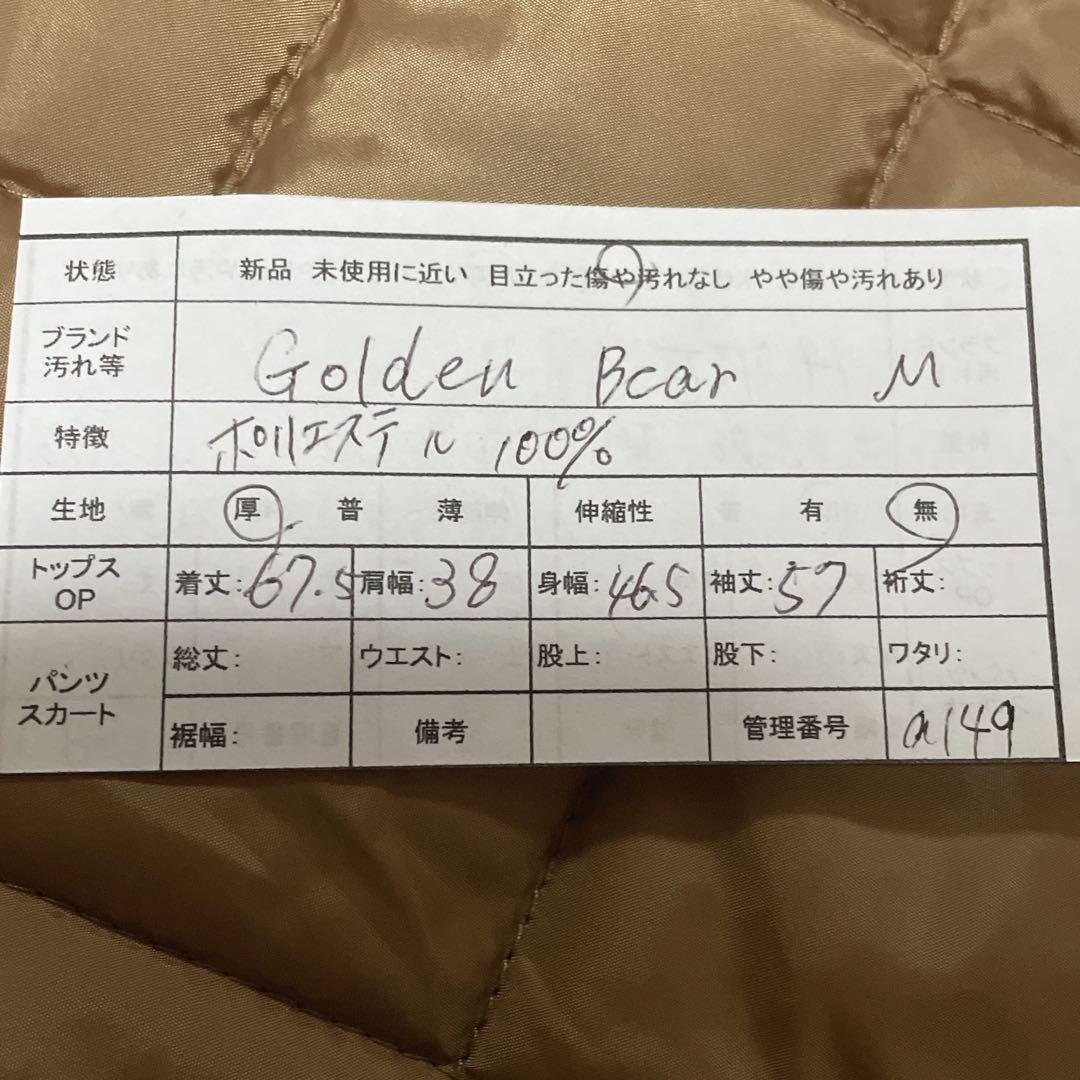 状態 新品 未使用に近い 目立った傷や汚れなし やや傷や汚れあり
ブランド
汚れ等 Golden Bear M
特徴 ポリエステル 100%
生地 厚 普 薄 伸縮性 有 無
トップス
OP 着丈:67.5 肩幅:38 身幅:46.5 袖丈:57 裄丈:
パンツ
スカート 総丈: ウエスト: 股上: 股下: ワタリ:
裾幅: 備考 管理番号 a149